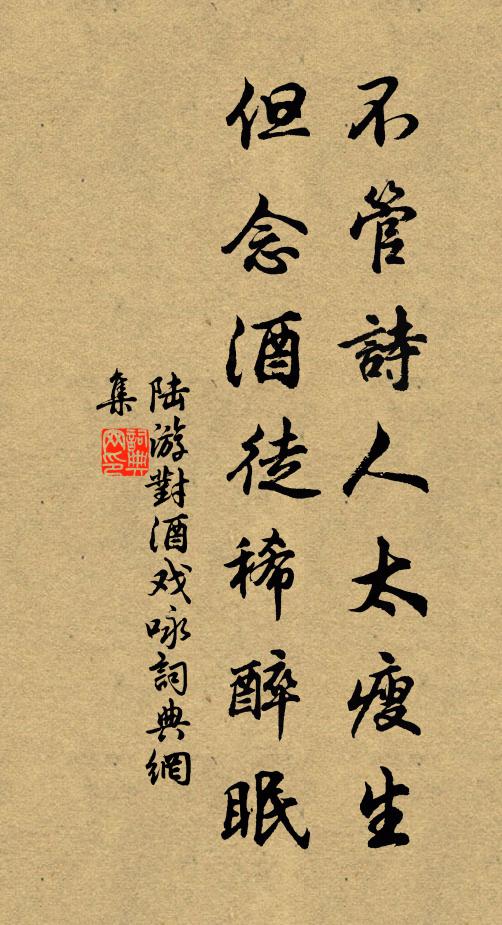 不管詩人太瘦生
但念酒徒稀醉眠
陆游對酒戏咏詞典網
集
詞典网印